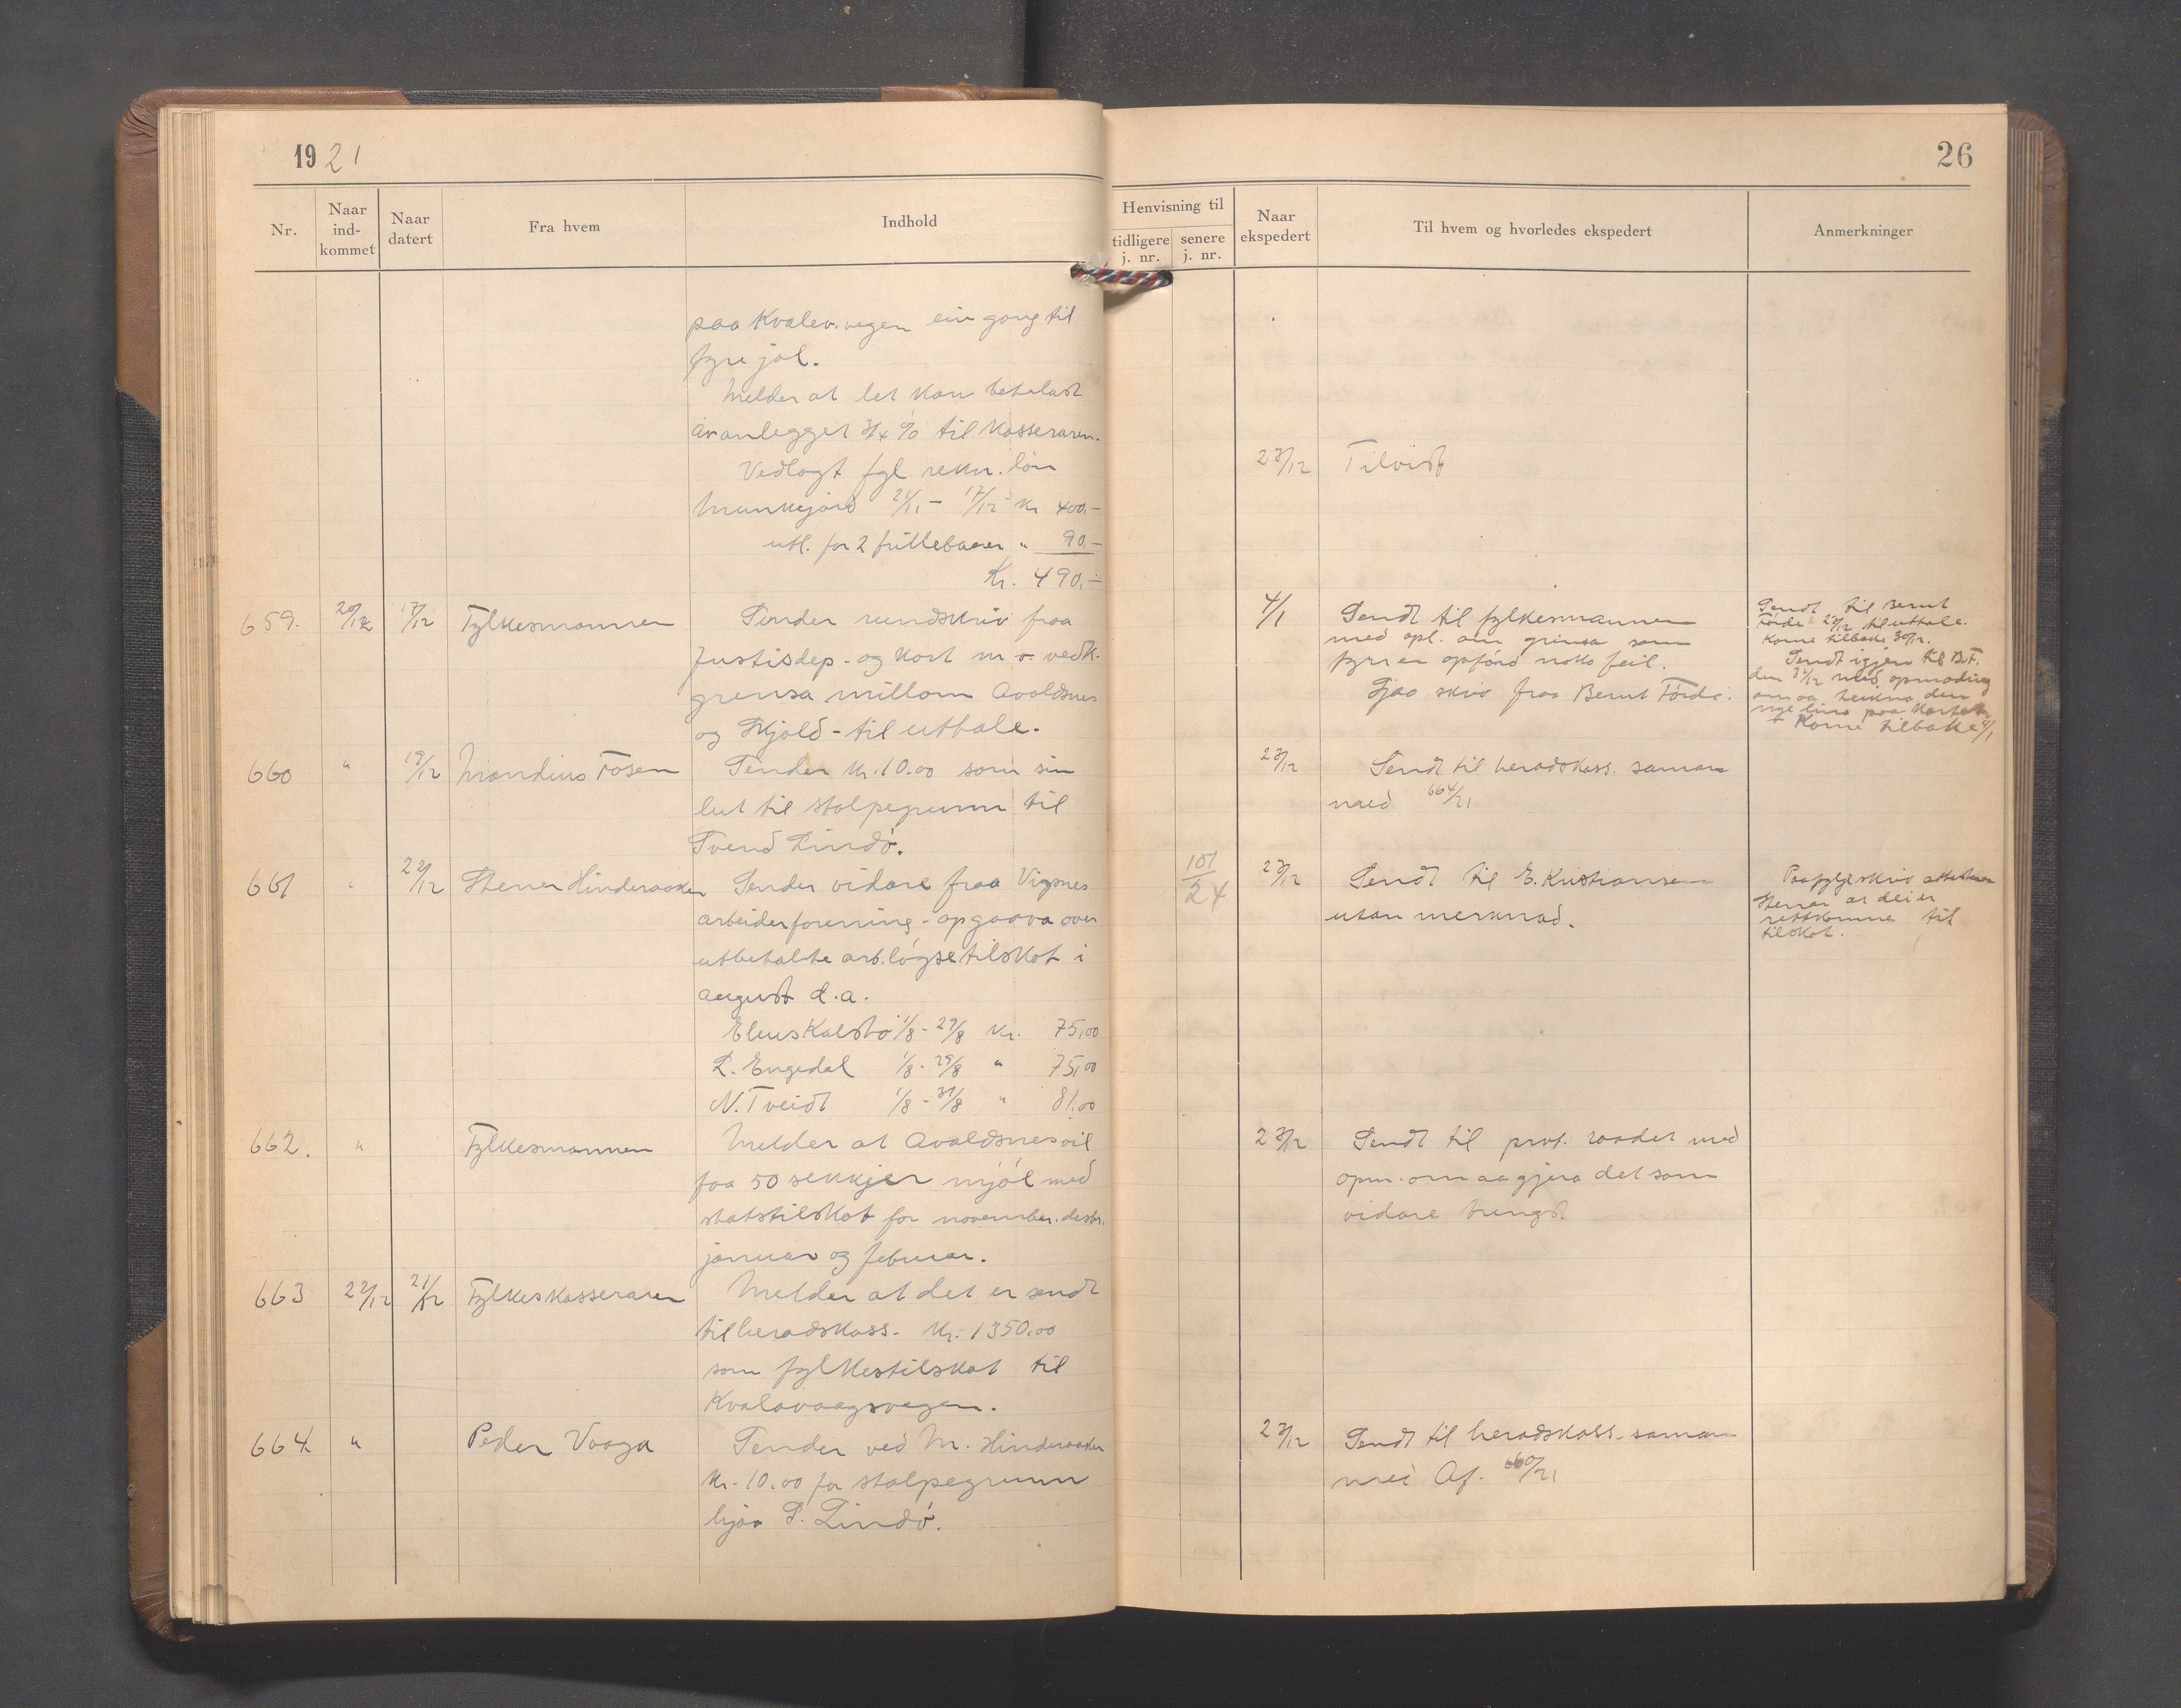 1921
26
Nr.
Naar ind-kommet
Naar datert
Fra hvem
Indhold
Henvisning til
tidligere j. nr.
senere j. nr.
Naar ekspedert
Til hvem og hvorledes ekspedert
Anmerkninger
paa Kvalev.vegen ein gong til
fyre jol.
Melder at let kan betalast
av anlegget 3/4 % til Kasseraren.
Vedlagt fgl rekn. løn
Munkejord 21/11 - 17/12 Kr 400,-
utl. for 2 trillebaarer " 90.-
Kr. 490,-
23/12 Tilvist
659. 20/12 17/12 Fylkesmannen
Sender rundskriv fraa
Justisdep. og kort m.v. vedk.
grensa millom Avaldsnes
og Skjold - til uttale.
4/1 Sendt til fylkesmannen
med opl. om grensa som
fyrr er opförd noko feil.
Sjaa skriv fraa Bernt Förde.
Sendt til Bernt
Förde 23/12 til uttale.
Kome tilbake 30/12.
Sendt igjen til B.F.
den 31/12 med opmoding
om aa teikna den
nye lina paa Kartet
+ Kome tilbake 4/1
660 " 19/12 Mandius Fosen
Sender Kr. 10.00 som sin
lut til stolpegrunn til
Svend Lindö.
23/12 Sendt til heradskass. saman
med 664/21
661 " 22/12 Stener Hinderaaker
Sender vidare fraa Vigsnes
arbeiderforening - opgaava over
utbetalte arb.löysetilskot i
august d.a.
Elius Kalstö 1/8 - 29/8 Kr. 75,00
L. Engedal 1/8 - 29/8 " 75,00
N. Tveidt 1/8 - 31/8 " 81.00
101/24
23/12 Sendt til E. Kristiansen
utan merknad.
Paafylgj.skriv attesterer
Stener at dei er
rettkomne til
tilskot.
662. " Fylkesmannen
Melder at Avaldsnes vil
faa 50 sekkjer mjöl med
statstilskot for november. desbr.
januar og februar.
23/12 Sendt til prov. raadet med
opm. om aa gjera det som
vidare trengst
663 22/12 21/12 Fylkeskasseraren
Melder at det er sendt
til heradskass. Kr. 1350.00
som fylkestilskot til
Kvalavaagsvegen.
664 " Peder Vaaga
Sender ved M. Hinderaaker
Kr. 10.00 for stolpegrunn
hjaa S. Lindö.
23/12 Sendt til heradskass. saman
med Af. 660/21